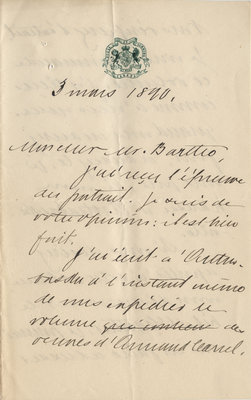 3 mars 1890.
Monsieur Mr. Barthe,
J'ai reçu l'épreuve
du portrait. Je suis de
votre opinion: il est bien
fait.
J'ai écrit à
à l'instant même
de vous expédier le
volume que contient des
œuvres d'Armand Carrel.